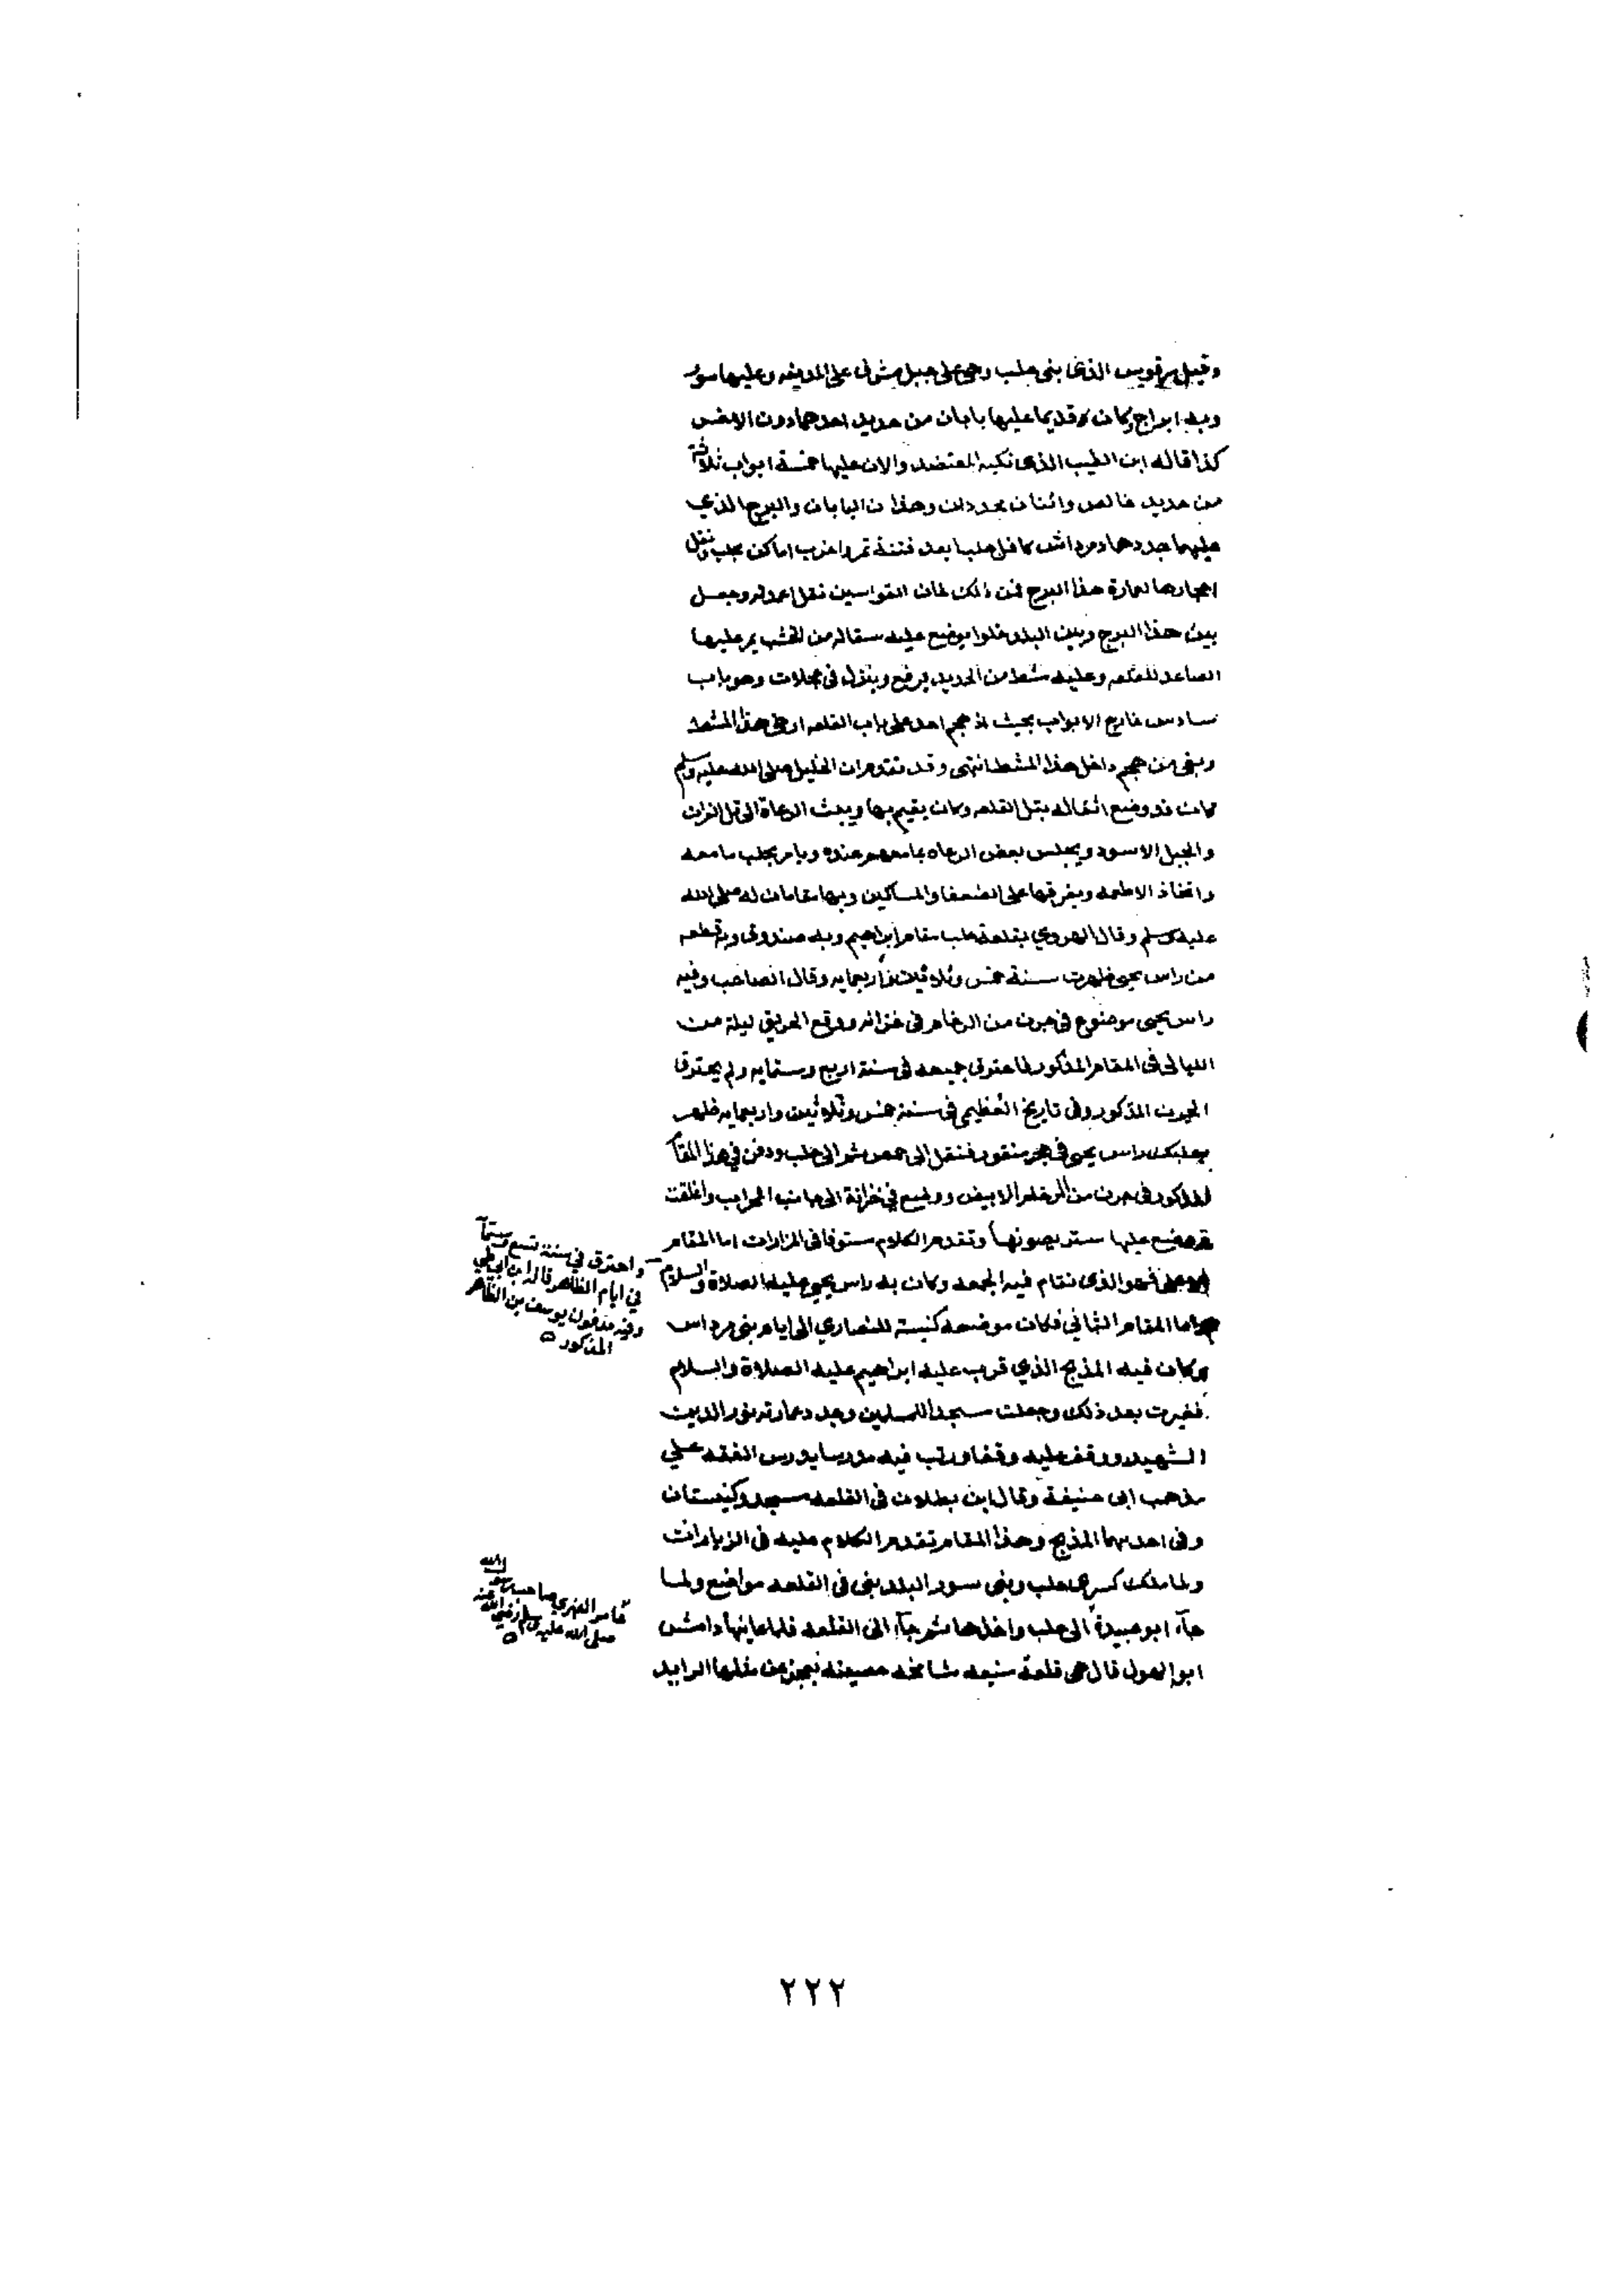 وقيل برقويس الذى بنى حلب وهى على جبل مشرف على المدينه وعليها سور
وبه ابراج وكان قديما عليها بابان من حديد احدهما دون الاخر
كذا قاله ابن الطيب الذى نكبه المعتضد والان عليها خمسة ابواب ثلاثة
من حديد خالص واثنان مجددان وهذان البابان والبرج الذي
عليهما جددها دمرداش كافل حلب بعد فتنة تمر واخرب اماكن بحلب ونقل
احجارها لعمارة هذا البرج فمن ذلك خان القواسين نقل اعمدته وجعل
بين هذا البرج وبين البلد خلوا يوضع عليه سقاله من الخشب يمر عليها
الصاعد للقلعه وعليه مشط من الحديد يرفع وينزل فى عجلات وهو باب
سادس خارج الابواب بحيث اذ هجم احد على باب القلعه ارخى هذا المشط
وبقى من هجم داخل هذا المشط انتهى وقد تقدم ان الخليل صلى الله عليه وسلم
كان قد وضع اثقاله بتل القلعه وكان يقيم بها ويبث الرعاة الى تل الفرات
والجبل الاسود ويجلس بعض الرعاه بما معهم عنده ويامر بحلب ما معه
واتخاذ الاطعمه ويفرقها على الضعفا والمساكين وبها مقامان له صلى الله
عليه وسلم وقال الهروي بقلعة حلب مقام ابراهيم وبه صندوق وبه قطعه
من راس يحيى ظهرت سنة خمس وثلاثين واربعمايه وقال الصاحب وفيه
راس يحيى موضوع فى جرن من الرخام فى خزانه ووقع الحريق ليلة من
الليالى فى المقام المذكور فاحترق جميعه فى سنة اربع وستمايه ولم يحترق
الجرن المذكور وفى تاريخ العظيمى فى سنة خمس وثلاثين واربعمايه ظهر
ببعلبك راس يحيى فى حجر منقور فنقل الى حمص ثم الى حلب ودفن في هذا المقام
المذكور فى جرن من الرخام الابيض ووضع في خزانة الى جانب المحراب واغلقت
ووضع عليها ستر يصونها وتقدم الكلام مستوفا فى المزارات اما المقام
الاعلى فهو الذى تقام فيه الجمعه وكان به راس يحيى عليه الصلاة والسلام
واحترق في سنة تسع وستمآ
في ايام الظاهر قاله ابن ابي طي
وفيه مدفون يوسف بن الظاهر
المذكور
واما المقام الثانى فكان موضعه كنيسة للنصارى الى ايام بنى مرداس
وكان فيه المذبح الذي قرب عليه ابراهيم عليه الصلاة والسلام
فغيرت بعد ذلك وجعلت مسجدا للمسلمين وجدد عمارته نور الدين
الشهيد ووقف عليه وقفا ورتب فيه مدرسا يدرس الفقه علي
مذهب ابى حنيفة وقال ابن بطلان فى القلعه مسجد وكنيستان
وفى احديهما المذبح وهذا المقام تقدم الكلام عليه فى الزيارات
ولما ملك كسرى حلب وبنى سور البلد بنى فى القلعه مواضع ولما
جآء ابو عبيدة الى حلب واخذها ثم جآء الى القلعه فلما عاينها دامس
عامر الفهري صاحب رسول الله
صلى الله عليه وسلم رضي الله عنه
ابو الهول قال هى قلعة منيعه شامخه حصينه يعجز عن مثلها الرايد
٢٢٢